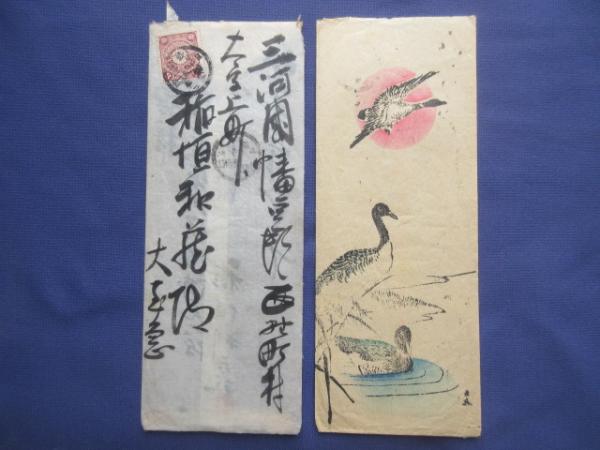 三河国幡豆郡西野町村
大字上町
稲垣和蔵様
大至急